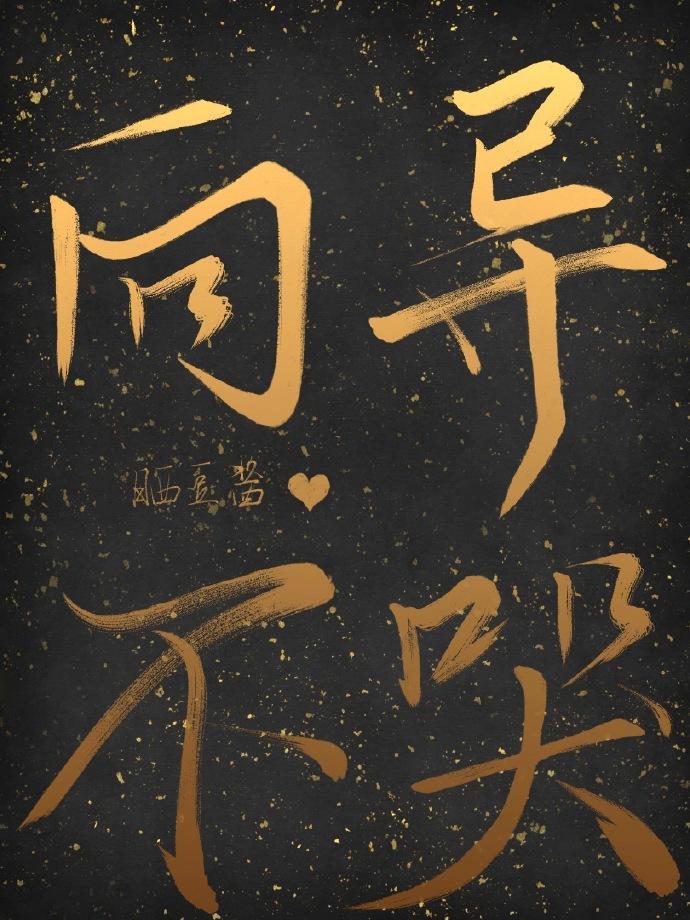 向导
晒豆酱
不哭